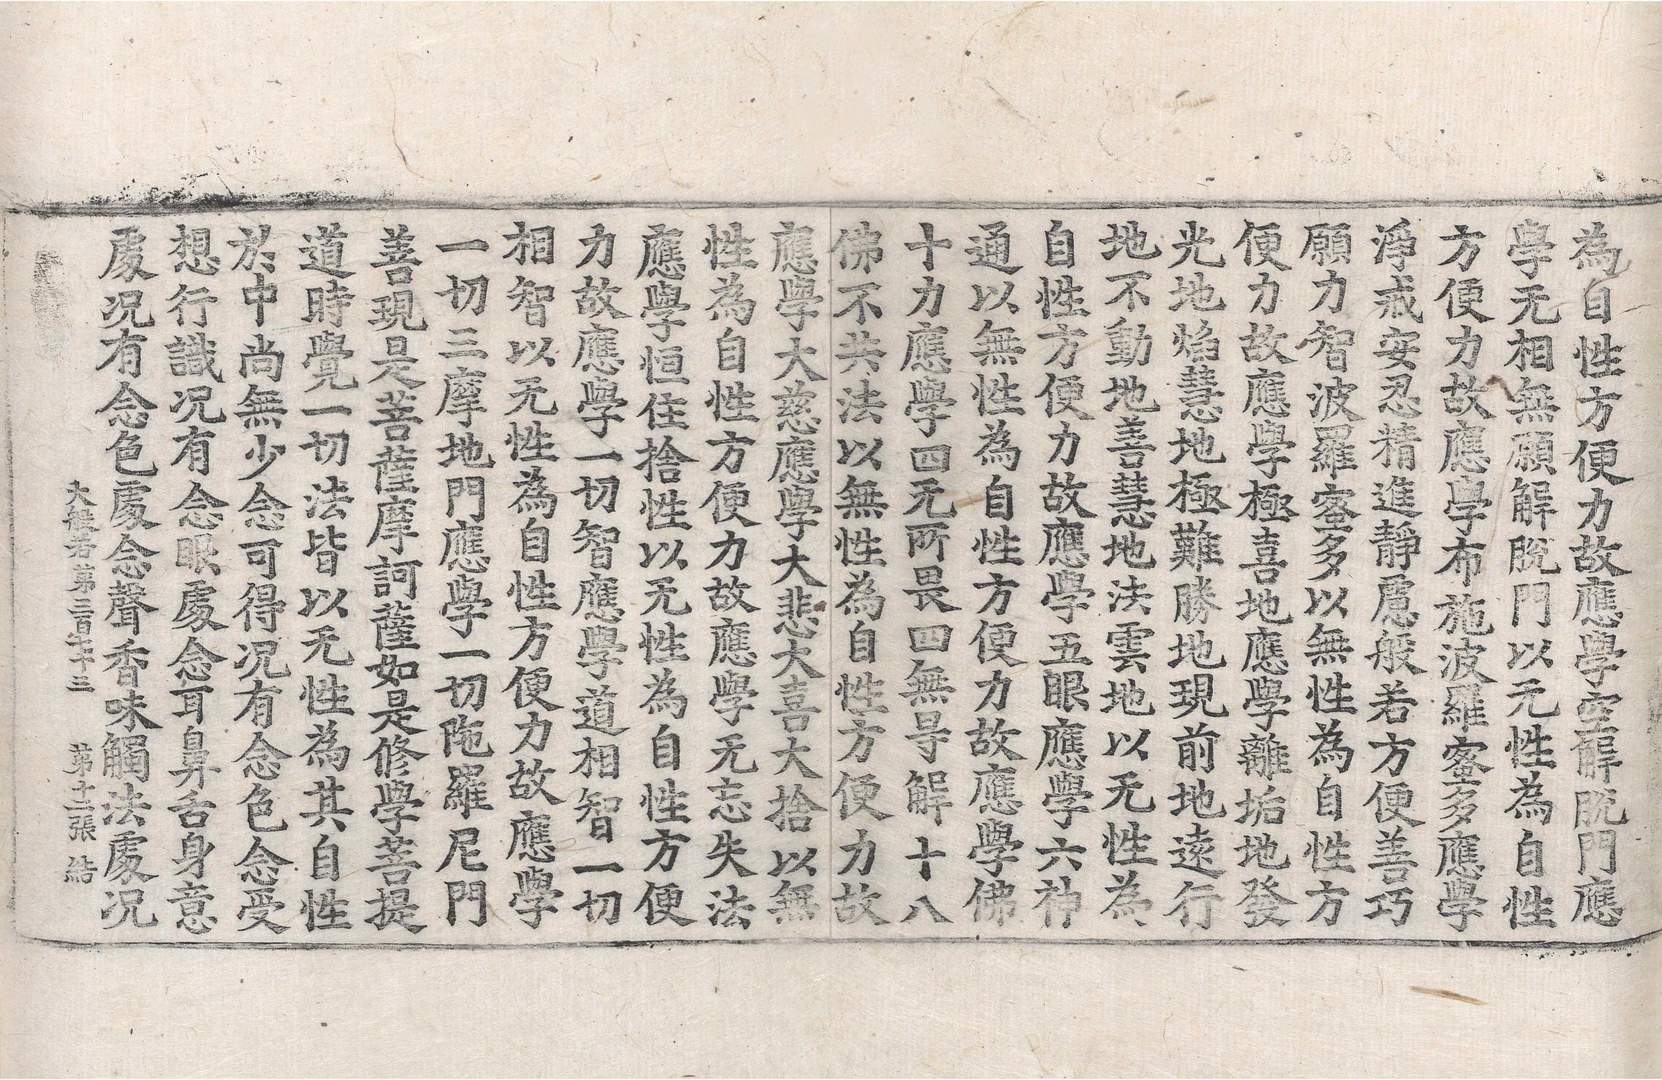 為自性方便力故應學空解脫門應
學无相無願解脫門以无性為自性
方便力故應學布施波羅蜜多應學
淨戒安忍精進靜慮般若方便善巧
願力智波羅蜜多以無性為自性方
便力故應學極喜地應學離垢地發
光地焰慧地極難勝地現前地遠行
地不動地善慧地法雲地以无性為
自性方便力故應學五眼應學六神
通以無性為自性方便力故應學佛
十力應學四无所畏四無㝵解十八
佛不共法以無性為自性方便力故
應學大慈應學大悲大喜大捨以無
性為自性方便力故應學无忘失法
應學恒住捨性以无性為自性方便
力故應學一切智應學道相智一切
相智以无性為自性方便力故應學
一切三摩地門應學一切陁羅尼門
善現是菩薩摩訶薩如是修學菩提
道時覺一切法皆以无性為其自性
於中尚無少念可得况有念色念受
想行識况有念眼處念耳鼻舌身意
處况有念色處念聲香味觸法處况
大般若第三百七十三 第十二張 結